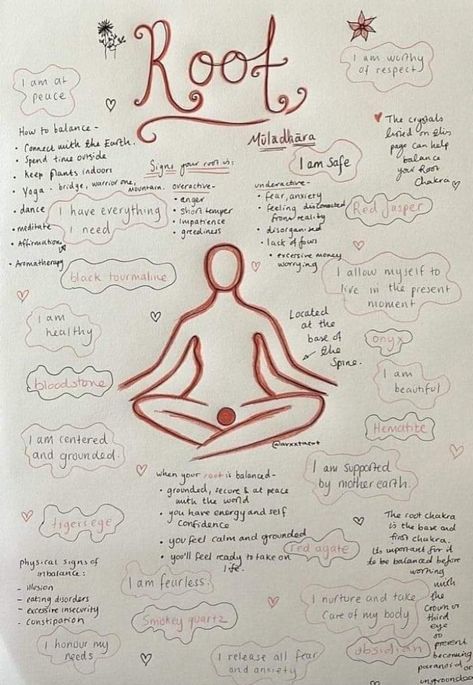 Root
Mūladhāra
I am at
peace
I am worthy
of respect
How to balance -
• Connect with the Earth.
• Spend time outside
• Keep plants indoors
• Yoga - bridge, warrior one,
mountain.
• dance
• meditate
• Affirmations
• Aromatherapy
Signs your root is:
overactive-
• anger
• short temper
• impatience
• greediness
underactive-
• fear, anxiety
• feeling disconnected
from reality
• disorganised
• lack of focus
• excessive money
worrying
I am safe
The crystals
listed on this
page can help
balance
your Root
Chakra
I have everything
I need
Red Jasper
black tourmaline
I allow myself to
live in the present
moment
I am
healthy
Located
at the
base of
the
Spine.
onyx
bloodstone
I am
beautiful
Hematite
I am centered
and grounded.
@arxxtacot
when your root is balanced-
• grounded, secure & at peace
with the world
• you have energy and self
confidence
• you feel calm and grounded
• you'll feel ready to take on
life.
I am supported
by mother earth.
tigers eye
Red agate
The root chakra
is the base and
first chakra.
Its important for it
to be balanced before
working
with
the
crown or
third
eye
to
prevent
becoming
paranoid or
ungrounded
physical signs of
inbalance:
- illusion
- eating disorders
- excessive insecurity
- constipation
I am fearless.
Smokey quartz
I nurture and take
care of my body
I honour my
needs
I release all fear
and anxiety
obsidian